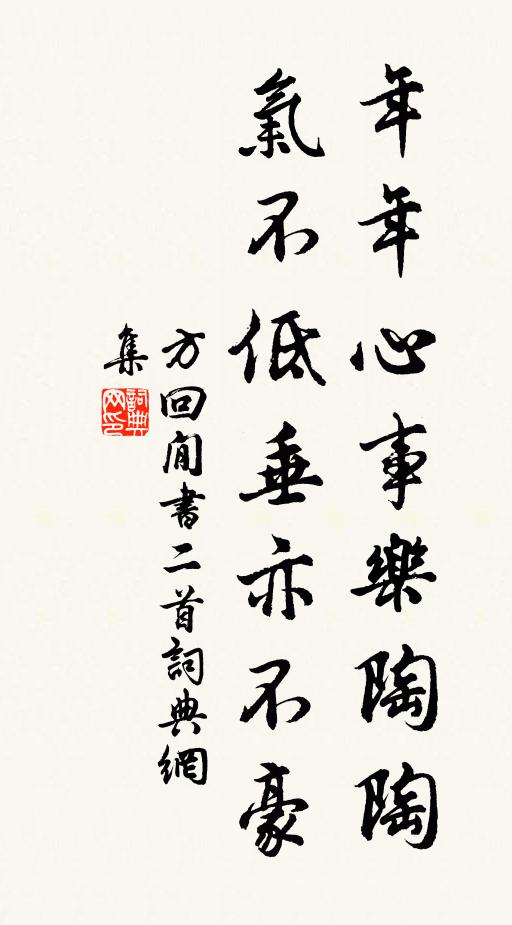 年年心事樂陶陶
氣不低垂亦不豪
方回閒書二首詞典網
集
詞典
网印